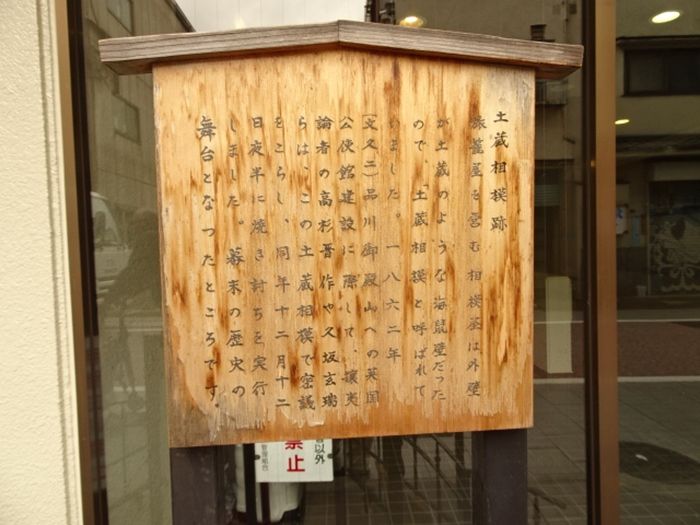 土蔵相模跡
旅籠屋を営む相模屋は外壁
が土蔵のような海鼠壁だった
ので、「土蔵相模」と呼ばれて
いました。一八六二年
(文久二)品川御殿山への英国
公使館建設に際して、攘夷
論者の高杉晋作や久坂玄瑞
らは、この土蔵相模で密議
をこらし、同年十二月十二
日夜半に焼き討ちを実行
しました。幕末の歴史の
舞台となったところです。
者以外
禁止
管理組合